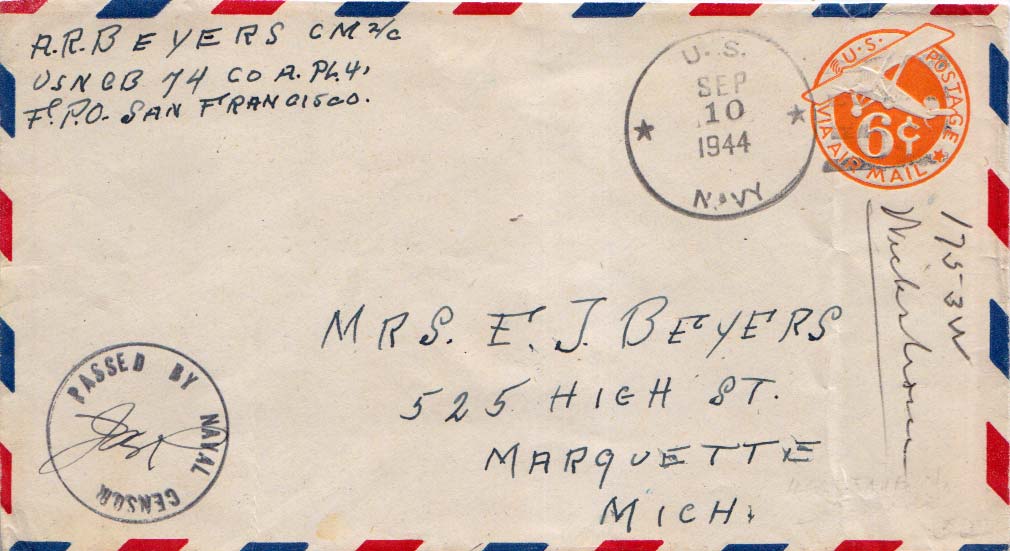 A.R. BEYERS CM 2/C
USNCB 74 CO A. PL. 4,
F.P.O. SAN FRANCISCO.
U.S.
SEP
10
1944
NAVY
U.S. POSTAGE
6¢
VIA AIR MAIL
175-3W
MRS. E. J. BEYERS
525 HIGH ST.
MARQUETTE
MICH.
PASSED BY NAVAL CENSOR